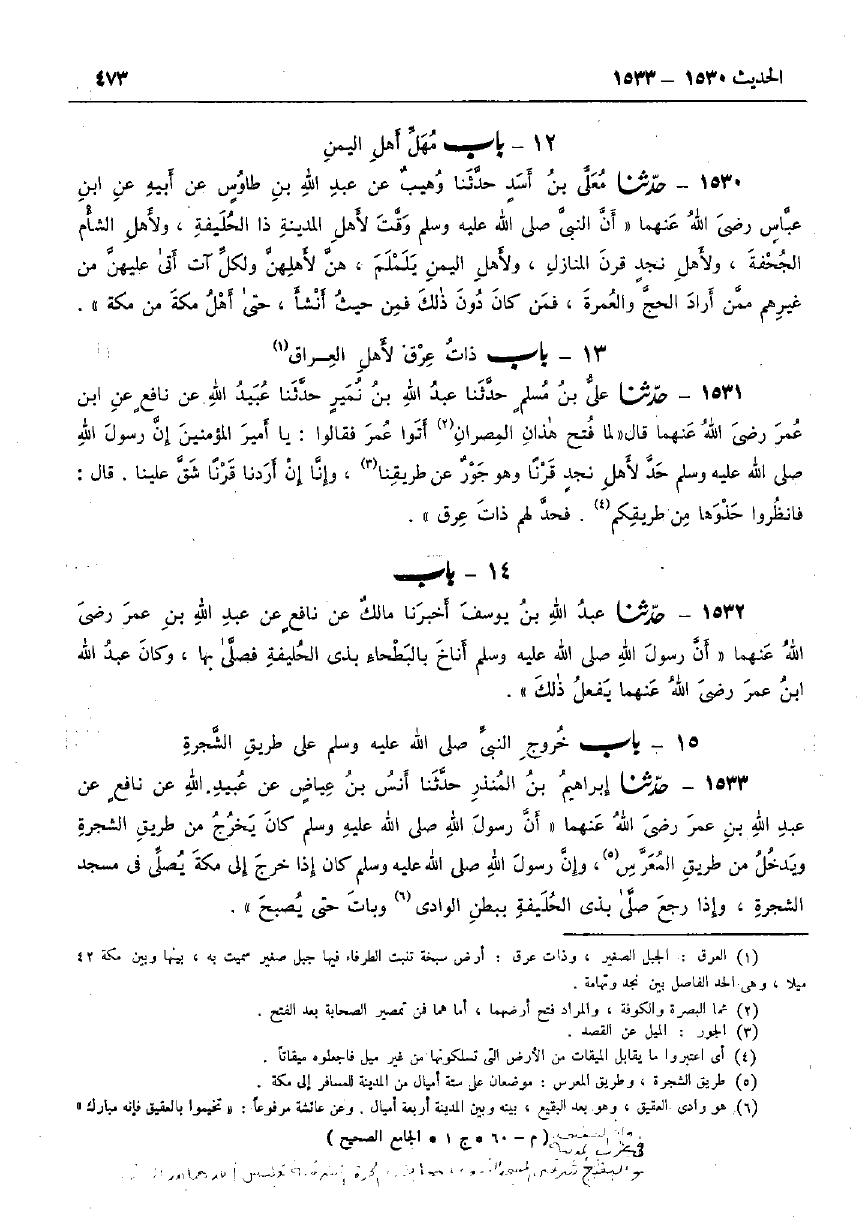 الحديث ١٥٣٠ – ١٥٣٣ ٤٧٣
١٢ – باب مُهَلِّ أَهلِ اليمنِ
١٥٣٠ – حدّثنا مُعَلَّى بنُ أَسَدٍ حدَّثَنا وُهيبٌ عن عبدِ اللهِ بنِ طاوُسٍ عن أَبيهِ عنِ ابنِ
عبَّاسٍ رضىَ اللهُ عَنهما « أَنَّ النبىَّ صلى الله عليه وسلم وَقَّتَ لأَهلِ المدينةِ ذا الحُلَيفةِ ، ولأَهلِ الشأْم
الجُحْفةَ ، ولأَهلِ نجدٍ قرنَ المنازلِ ، ولأَهلِ اليمنِ يَلَمْلَمَ ، هنَّ لأَهلِهنَّ ولكلِّ آت أَتىٰ عليهنَّ من
غيرِهم ممَّن أَرادَ الحجَّ والعُمرةَ ، فمَن كانَ دُونَ ذٰلكَ فمِن حيثُ أَنْشأَ ، حتىٰ أَهْلُ مكةَ من مكة » .
١٣ – باب ذاتُ عِرْقٍ لأَهلِ العِراق(١)
١٥٣١ – حدّثنا علىُّ بنُ مُسلمٍ حدَّثَنا عبدُ اللهِ بنُ نُمَيرٍ حدَّثَنا عُبَيدُ اللهِ عن نافعٍ عنِ ابن
عُمرَ رضىَ اللهُ عَنهما قال « لما فُتح هٰذانِ المِصرانِ(٢) أَتَوا عُمرَ فقالوا : يا أَميرَ المؤمنينَ إِنَّ رسولَ اللهِ
صلى الله عليه وسلم حَدَّ لأَهلِ نجدٍ قَرْنًا وهو جَوْرٌ عن طريقِنا(٣) ، وإِنَّا إِنْ أَرَدنا قَرْنًا شَقَّ علينا . قال :
فانظُروا حَذْوَها مِن طريقِكم(٤) . فحدَّ لهم ذاتَ عِرق » .
١٤ – باب
١٥٣٢ – حدّثنا عبدُ اللهِ بنُ يوسفَ أَخبرَنا مالكٌ عن نافعٍ عن عبدِ اللهِ بنِ عمرَ رضىَ
اللهُ عَنهما « أَنَّ رسولَ اللهِ صلى الله عليه وسلم أَناخَ بالبَطْحاءِ بذى الحُليفةِ فصلَّىٰ بها ، وكانَ عبدُ الله
ابنُ عمرَ رضىَ اللهُ عَنهما يَفعلُ ذٰلكَ » .
١٥ – باب خُروجِ النبىِّ صلى الله عليه وسلم على طريقِ الشَّجرةِ
١٥٣٣ – حدّثنا إِبراهيمُ بنُ المُنذرِ حدَّثَنا أَنَسُ بنُ عِياضٍ عن عُبيدِ اللهِ عن نافعٍ عن
عبدِ اللهِ بنِ عمرَ رضىَ اللهُ عَنهما « أَنَّ رسولَ اللهِ صلى الله عليه وسلم كانَ يَخرُجُ من طريقِ الشجرةِ
ويَدخُلُ من طريقِ المُعَرَّسِ(٥)، وإِنَّ رسولَ اللهِ صلى الله عليه وسلم كان إِذا خرجَ إِلى مكةَ يُصلِّى فى مسجد
الشجرةِ ، وإِذا رجعَ صلَّىٰ بذى الحُلَيفةِ ببطنِ الوادى(٦) وباتَ حتى يُصبحَ » .
(١) العرق : الجبل الصغير ، وذات عرق : أرض سبخة تنبت الطرفاء فيها جبل صغير سميت به ، بينها وبين مكة ٤٢
ميلا ، وهى الحد الفاصل بين نجد وتهامة .
(٢) هما البصرة والكوفة ، والمراد فتح أرضهما ، أما هما فن تمصير الصحابة بعد الفتح .
(٣) الجور : الميل عن القصد .
(٤) أى اعتبروا ما يقابل الميقات من الأرض التى تسلكونها من غير ميل فاجعلوه ميقاتاً .
(٥) طريق الشجرة ، وطريق المعرس : موضعان على ستة أميال من المدينة للمسافر إلى مكة .
(٦) هو وادى العقيق ، وهو بعد البقيع ، بينه وبين المدينة أربعة أميال . وعن عائشة مرفوعاً : « تخيموا بالعقيق فإنه مبارك »
( م – ٦٠ * ج ١ * الجامع الصحيح )